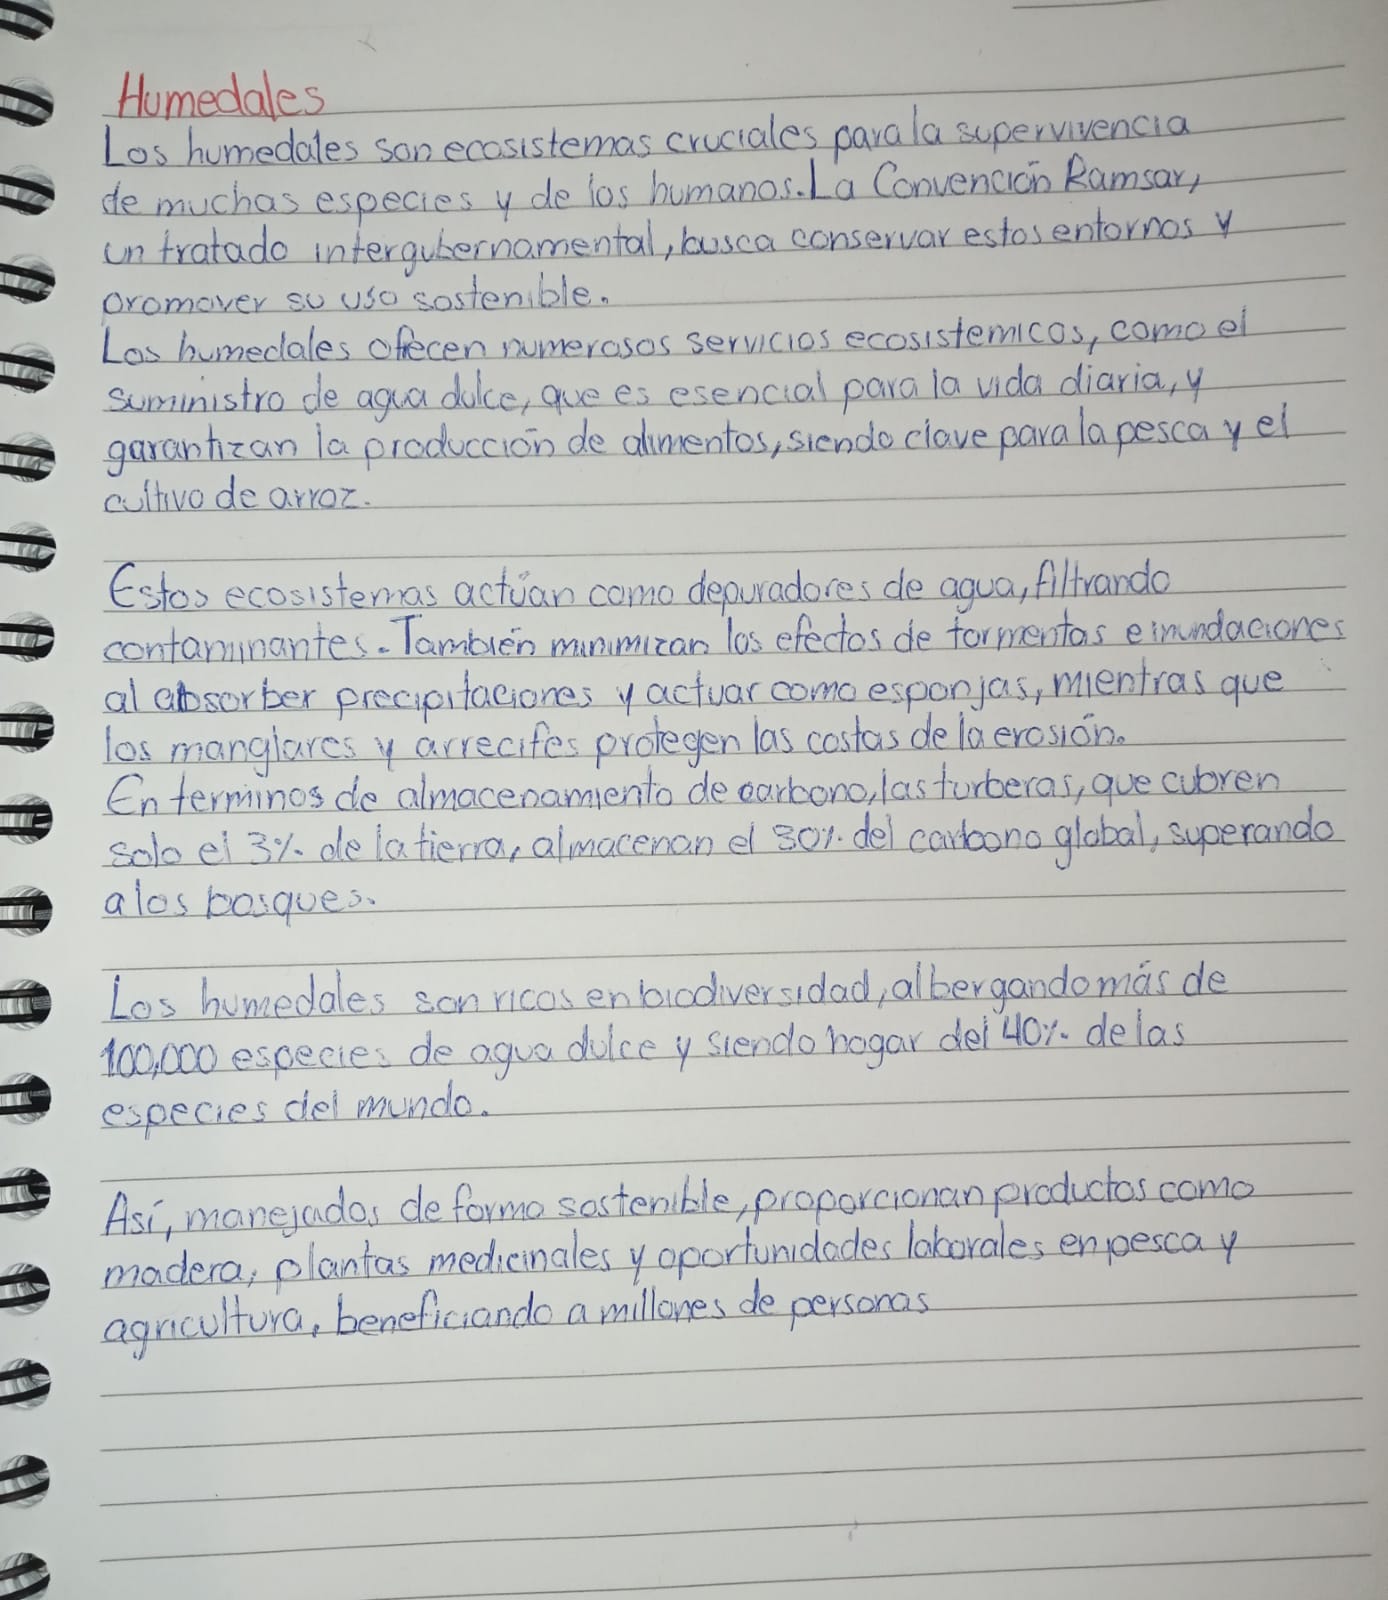 Humedales
Los humedales son ecosistemas cruciales para la supervivencia
de muchas especies y de los humanos. La Convención Ramsar,
un tratado intergubernamental, busca conservar estos entornos y
promover su uso sostenible.
Los humedales ofrecen numerosos servicios ecosistemicos, como el
suministro de agua dulce, que es esencial para la vida diaria, y
garantizan la producción de alimentos, siendo clave para la pesca y el
cultivo de arroz.
Estos ecosistemas actúan como depuradores de agua, filtrando
contaminantes. También minimizan los efectos de tormentas e inundaciones
al absorber precipitaciones y actuar como esponjas, mientras que
los manglares y arrecifes protegen las costas de la erosión.
En terminos de almacenamiento de carbono, las turberas, que cubren
solo el 3% de la tierra, almacenan el 30% del carbono global, superando
a los bosques.
Los humedales son ricos en biodiversidad, albergando más de
100,000 especies de agua dulce y siendo hogar del 40% de las
especies del mundo.
Así, manejados de forma sostenible, proporcionan productos como
madera, plantas medicinales y oportunidades laborales en pesca y
agricultura, beneficiando a millones de personas